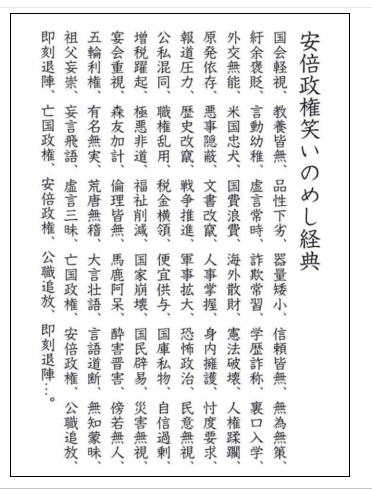 安倍政権笑いのめし経典
国会軽視、教養皆無、品性下劣、器量矮小、信頼皆無、無為無策、
紆余褒貶、言動幼稚、虚言常時、詐欺常習、学歴詐称、裏口入学、
外交無能、米国忠犬、国費浪費、海外散財、憲法破壊、人権蹂躙、
原発依存、悪事隠蔽、文書改竄、人事掌握、身内擁護、忖度要求、
報道圧力、歴史改竄、戦争推進、軍事拡大、恐怖政治、民意無視、
公私混同、職権乱用、税金横領、便宜供与、国庫私物、自信過剰、
増税躍起、極悪非道、福祉削減、国家崩壊、国民辟易、災害無視、
宴会重視、森友加計、倫理皆無、馬鹿阿呆、酔害晋害、傍若無人、
五輪利権、有名無実、荒唐無稽、大言壮語、言語道断、無知蒙昧、
祖父妄崇、妄言飛語、虚言三昧、亡国政権、安倍政権、公職追放、
即刻退陣、亡国政権、安倍政権、公職追放、即刻退陣…。